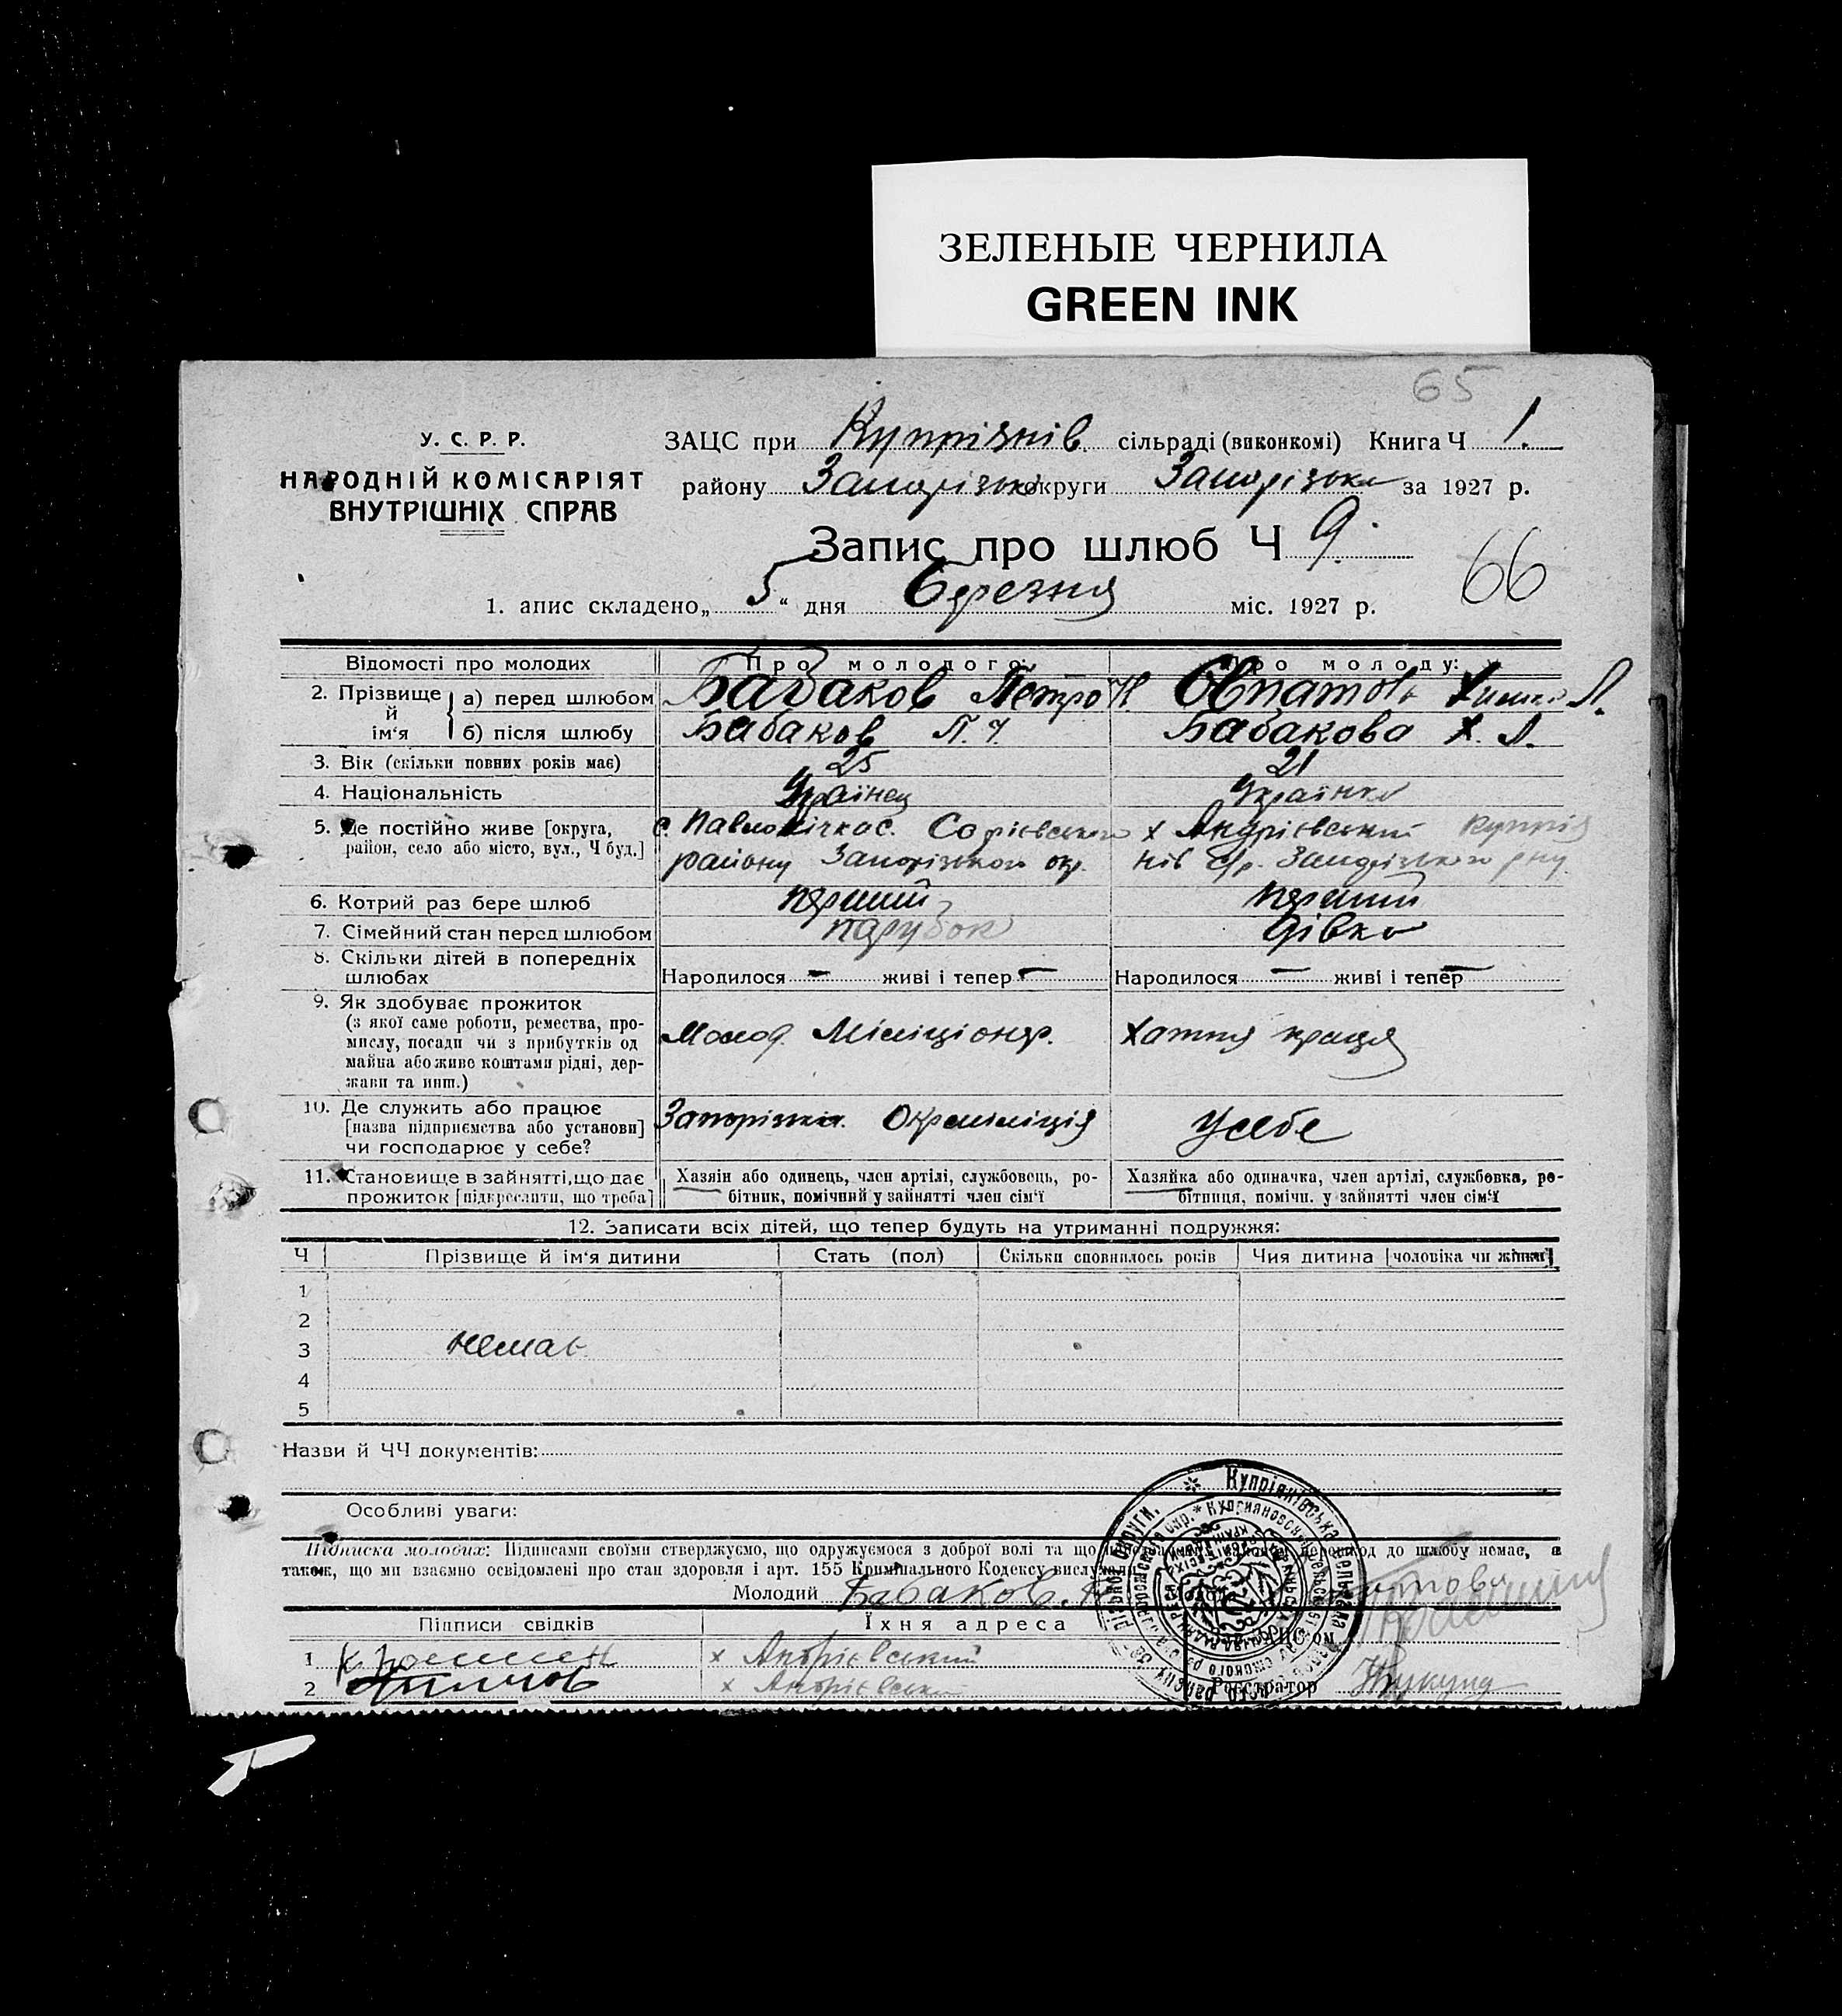 ЗЕЛЕНЫЕ ЧЕРНИЛА
GREEN INK
65
У. С. Р. Р.
НАРОДНІЙ КОМІСАРІЯТ
ВНУТРІШНІХ СПРАВ
ЗАЦС при Купріянів. сільраді (виконкомі) Книга Ч 1.
району Запорізько округи Запорізька за 1927 р.
Запис про шлюб Ч 9.
66
1. апис складено „ 5 “ дня березня міс. 1927 р.
Відомості про молодих Про молодого: Про молоду:
2. Прізвище й ім'я а) перед шлюбом Бабаков Петро Л.
б) після шлюбу Бабаков П. Бабакова Х. Л.
3. Вік (скільки повних років має) 25 21
4. Національність Українец Українка
5. Де постійно живе [округа, с. Павлокічкас. х Андріївський Купрія
район, село або місто, вул., Ч буд.] району Запорізького окр. нів с/р. Запорізького р-ну
6. Котрий раз бере шлюб перший перший
7. Сімейний стан перед шлюбом парубок дівка
8. Скільки дітей в попередніх
шлюбах Народилося — живі і тепер — Народилося — живі і тепер —
9. Як здобуває прожиток
(з якої саме роботи, ремества, про-
мислу, посади чи з прибутків од Молод. Міліціонер. Хатня праця
майна або живе коштами рідні, дер-
жави та инш.)
10. Де служить або працює
[назва підприємства або установи] Запорізька. Окрміліція У себе
чи господарює у себе?
11. Становище в зайнятті, що дає Хазяін або одинець, член артілі, службовець, ро- Хазяйка або одиначка, член артілі, службовка, ро-
прожиток [підкреслити, що треба] бітник, помічний у зайнятті член сім'ї бітниця, помічн. у зайнятті член сім'ї
12. Записати всіх дітей, що тепер будуть на утриманні подружжя:
Ч Прізвище й ім'я дитини Стать (пол) Скільки сповнилось років Чия дитина [чоловіка чи жінки]
1
2
3 немає
4
5
Назви й ЧЧ документів:
Особливі уваги:
Підписка молодих: Підписами своїми стверджуємо, що одружуємося з доброї волі та що перешкод до шлюбу немає, а
також, що ми взаємно освідомлені про стан здоровля і арт. 155 Кримінального Кодексу вислухали.
Молодий Бабаков.
Підписи свідків Їхня адреса
1 х Андріївський
2 х Андріївський Реєстратор